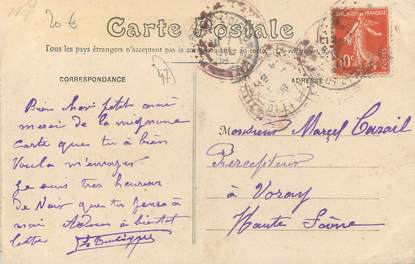 20 €
Carte Postale
Tous les pays étrangers n'acceptent pas la correspondance au
CORRESPONDANCE
ADRESSE
47
Bien cher petit ami
merci de la mignonne
Carte que tu a bien
Voulu m'envoyer
Je suis très heureux
de Voir que tu pense à
moi à bientôt
lettre
Monsieur Marcel
Percepteur
à Voray
Haute Saône
10c
POSTES